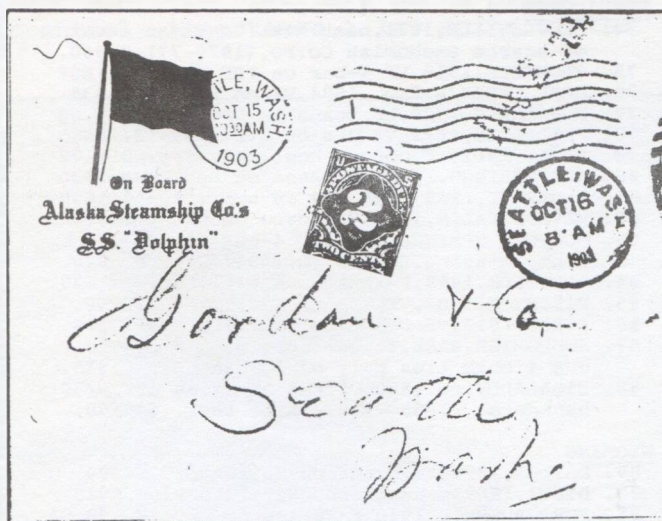 TLE, WASH
OCT 15
1030AM
1903
On Board
Alaska Steamship Co's
S.S. "Dolphin"
U.S.
POSTAGE DUE
2
TWO CENTS
SEATTLE, WASH.
OCT 16
8 AM
1903
Gordan & Co.
Seattle
Wash.